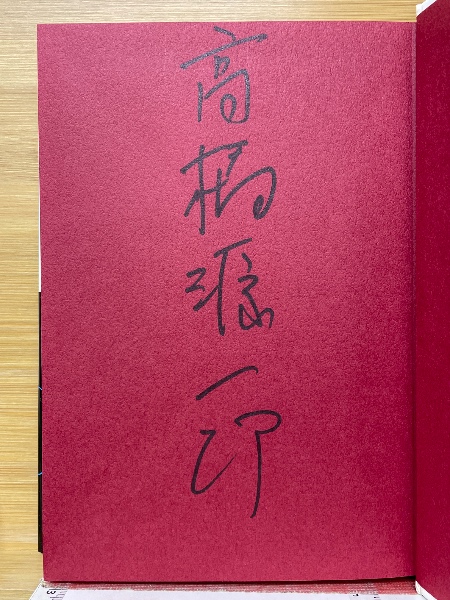 高橋源一郎